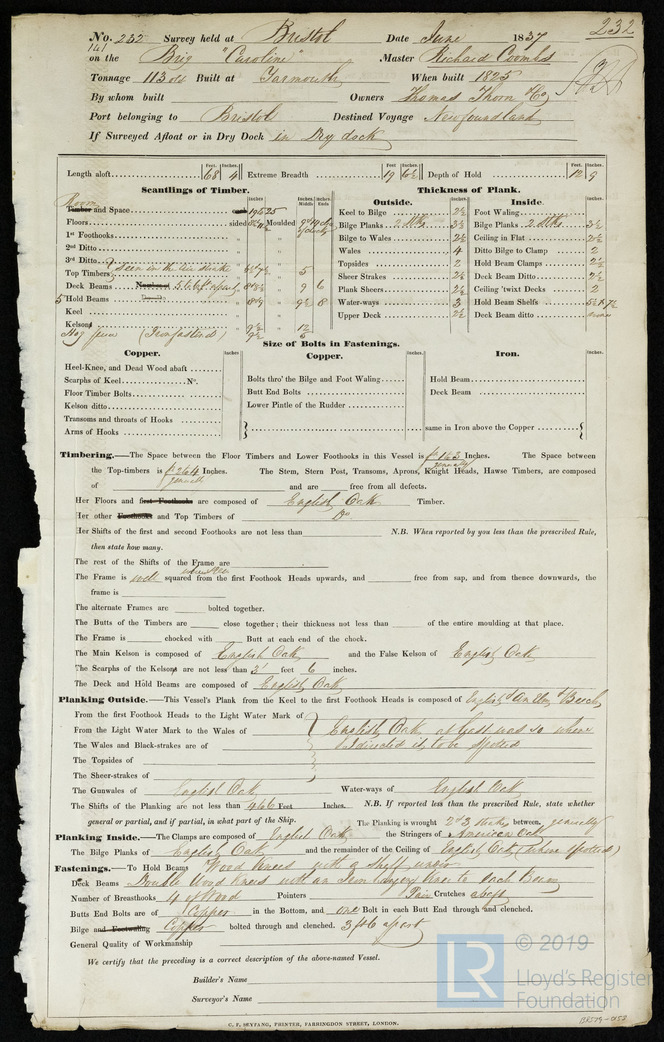 232
No. 232 Survey held at Bristol Date June 1837
141
on the Brig "Caroline" Master Richard Coombs
Tonnage 113 Built at Yarmouth When built 1825
By whom built Owners Thomas Thorn & Co
Port belonging to Bristol Destined Voyage Newfoundland
If Surveyed Afloat or in Dry Dock in Dry dock
Length aloft 68 4 Extreme Breadth 19 6½ Depth of Hold 12 9
Feet. Inches. Feet. Inches. Feet. Inches.
Scantlings of Timber.
Room
Timber and Space
Floors sided Moulded
1st Foothooks
2nd Ditto
3rd Ditto
Top Timbers 5
Deck Beams 9 6
5 Hold Beams 8
Keel
Kelsons
(Iron fastened)
Thickness of Plank.
Outside.
Keel to Bilge 2½
Bilge Planks 3½
Bilge to Wales 2½
Wales 4
Topsides 2
Sheer Strakes 2½
Plank Sheers 2½
Water-ways 3
Upper Deck 2½
Inside
Foot Waling
Bilge Planks 3½
Ceiling in Flat 2½
Ditto Bilge to Clamp 2
Hold Beam Clamps 2½
Deck Beam Ditto 2½
Ceiling 'twixt Decks 2
Hold Beam Shelfs
Deck Beam ditto
Size of Bolts in Fastenings.
Copper.
Heel-Knee, and Dead Wood abaft
Scarphs of Keel No.
Floor Timber Bolts
Kelson ditto
Transoms and throats of Hooks
Arms of Hooks
Copper.
Bolts thro' the Bilge and Foot Waling
Butt End Bolts
Lower Pintle of the Rudder
Iron.
Hold Beam
Deck Beam
same in Iron above the Copper
Timbering.—The Space between the Floor Timbers and Lower Foothooks in this Vessel is Inches. The Space between
generally
the Top-timbers is Inches. The Stem, Stern Post, Transoms, Aprons, Knight Heads, Hawse Timbers, are composed
of and are free from all defects.
Her Floors and first Foothooks are composed of English Oak Timber.
Her other Foothooks and Top Timbers of Do
Her Shifts of the first and second Foothooks are not less than N.B. When reported by you less than the prescribed Rule,
then state how many.
The rest of the Shifts of the Frame are
The Frame is well squared from the first Foothook Heads upwards, and free from sap, and from thence downwards, the
frame is
The alternate Frames are bolted together.
The Butts of the Timbers are close together; their thickness not less than of the entire moulding at that place.
The Frame is chocked with Butt at each end of the chock.
The Main Kelson is composed of English Oak and the False Kelson of English Oak
The Scarphs of the Kelsons are not less than 3 feet 6 inches.
The Deck and Hold Beams are composed of English Oak
Planking Outside.—This Vessel's Plank from the Keel to the first Foothook Heads is composed of English Oak Elm & Beech
From the first Foothook Heads to the Light Water Mark of
From the Light Water Mark to the Wales of English Oak at least was so where
The Wales and Black-strakes are of I directed it to be spotted
The Topsides of
The Sheer-strakes of
The Gunwales of English Oak Water-ways of English Oak
The Shifts of the Planking are not less than 4 6 6 Feet Inches. N.B. If reported less than the prescribed Rule, state whether
general or partial, and if partial, in what part of the Ship. The Planking is wrought 2 & 3 between. generally
Planking Inside.—The Clamps are composed of English Oak the Stringers of American Oak
The Bilge Planks of English Oak and the remainder of the Ceiling of English Oak (where spotted)
Fastenings.—To Hold Beams Wood Knees with a Shelf under
Deck Beams Double Wood Knees with an Iron Knee to each Beam
Number of Breasthooks 4 of Wood Pointers Pair Crutches abaft
Butts End Bolts are of Copper in the Bottom, and one Bolt in each Butt End through and clenched.
Bilge and Footwaling Copper bolted through and clenched. 3 ft 6 apart
General Quality of Workmanship
We certify that the preceding is a correct description of the above-named Vessel.
Builder's Name
Surveyor's Name
C. F. SEYFANG, PRINTER, FARRINGDON STREET, LONDON.
LR © 2019
Lloyd's Register
Foundation